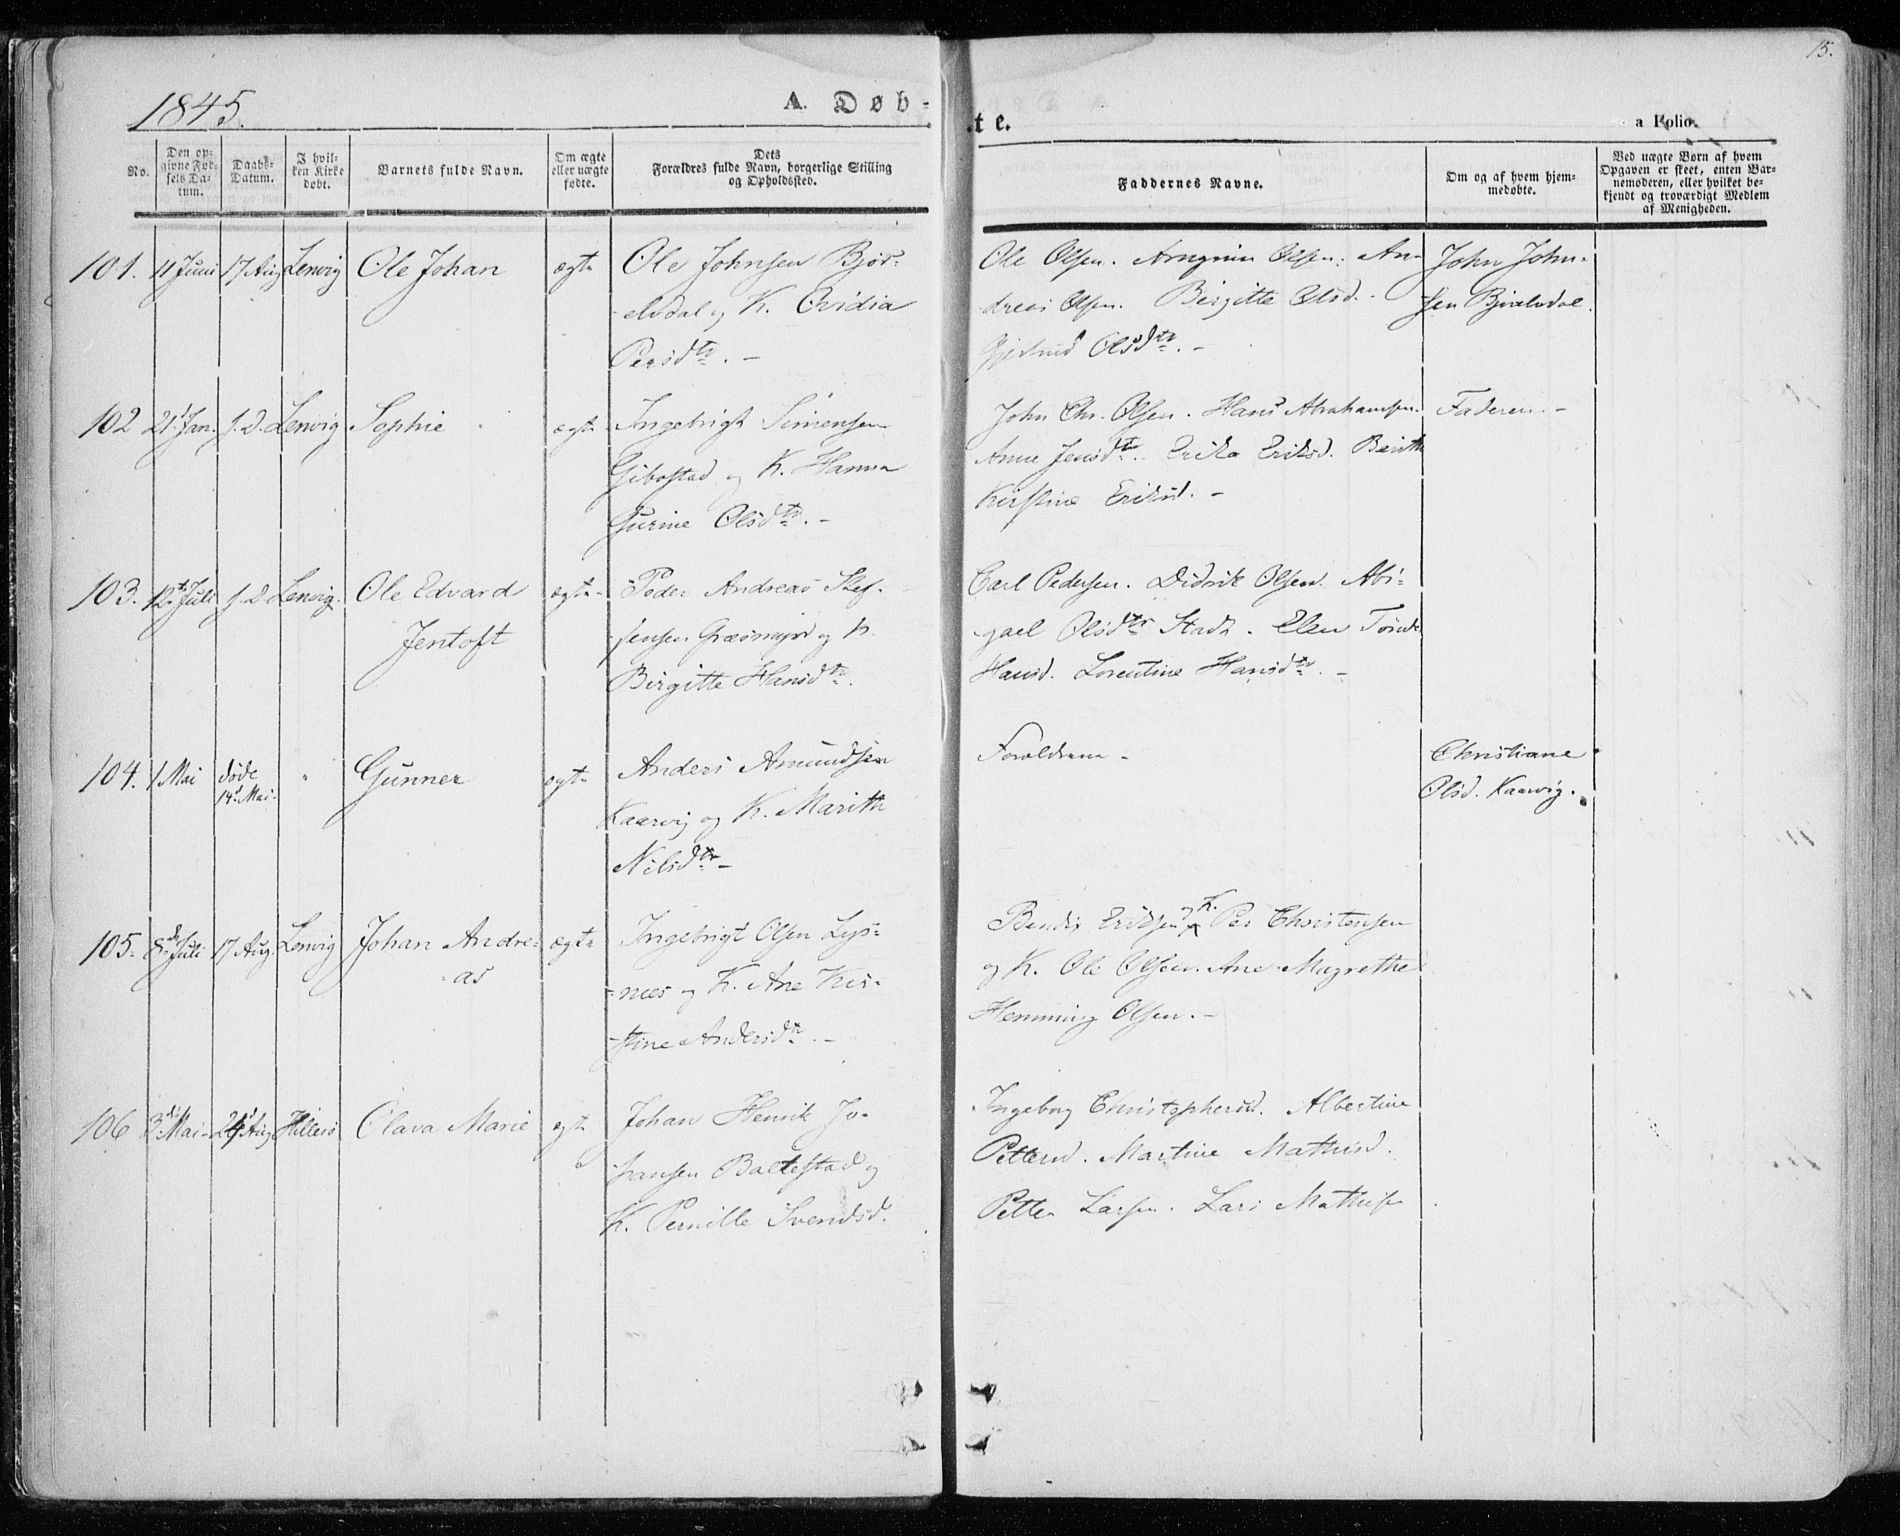 15.
1845.
A. Døb-
te.
a Folio.
No.
Den op-
givne Fød-
sels Da-
tum.
Daabs-
Datum.
I hvil-
ken Kirke
døbt.
Barnets fulde Navn.
Om ægte
eller uægte
fødte.
Dets
Forældres fulde Navn, borgerlige Stilling
og Opholdssted.
Faddernes Navne.
Om og af hvem hjem-
medøbte.
Ved uægte Børn af hvem
Opgaven er skeet, enten Bar-
nemoderen, eller hvilket be-
kjendt og troværdigt Medlem
af Menigheden.
101. 11 Juni 17 Aug Lenvig Ole Johan ægte
Ole Johnsen Bjør-
elvdal og K. Ovidia
Persdtr. -
Ole Olsen. Arngrim Olsen. An-
dreas Olsen. Birgitte Olsd. -
Gjertrud Olsdtr. -
John John-
sen Bjørelvdal.
102 21 Jan. s. D. Lenvig Sophie ægte
Ingebrigt Simensen
Gibostad og K. Hanna
Gurine Olsdtr. -
John Chr. Olsen. Hans Abrahamsen.
Anne Jensdtr. Erika Eriksd. Berith
Kirstine Eriksd. -
Faderen. -
103. 12te Juli s. D. Lenvig. Ole Edvard
Jentoft
ægte
Peder Andreas Stef-
fensen Græsmyr og K.
Birgitte Hansdtr.
Carl Pedersen. Didrik Olsen. Abi-
gael Olsdtr Stads. Elen
Hansd. Lorentine Hansdtr. -
104. 1 Mai døde
14d Mai. " Gunner ægte
Anders Amundsen
Kaarvig og K. Marith
Nilsdtr -
Forældrene -
Christiane
Olsd. Kaarvig.
105. 8de Juli 17 Aug. Lenvig Johan Andre-
as
ægte
Ingebrigt Olsen Lys-
nes og K. Ane Kir-
stine Andersdtr. -
Bendix Eriksen og K. Per Christensen
og K. Ole Olsen. Ane Magrethe
Henning Olsen. -
106 3di Mai 24 Aug Hillesø Olava Marie ægte
Johan Henrik Jo-
hansen Baltestad og
K. Pernille Svendsd.
Ingeborg Christophersd. Albertine
Pettersd. Martine Mathisd.
Petter Larsen. Lars Mathisen